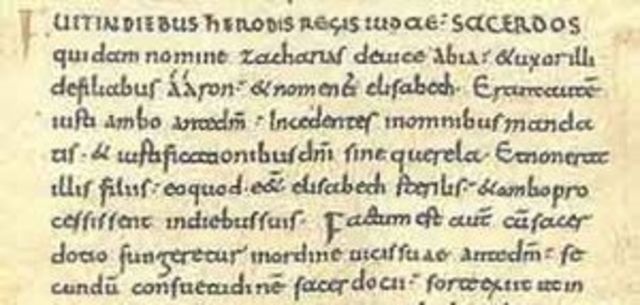 FUIT IN DIEBUS hERODIS REGIS IUDAE· SACERDOS
quidam nomine zacharias deuice abia· & uxor illi
defiliabus ááron· & nomen ei elisabeth· Erant autē
iusti ambo ante dm̄· Incedentes inomnibus manda
tis· & iustificationibus dn̄i sine querela· Et non erat
illis filius· eo quod· eēt elisabeth sterilis· & ambo pro
cessissent indiebus suis· Factum est aut̄ cū sacer
dotio fungeretur inordine uicis suae ante dm̄· se
cundū consuetudinē sacerdotii· sorte exiit ut in